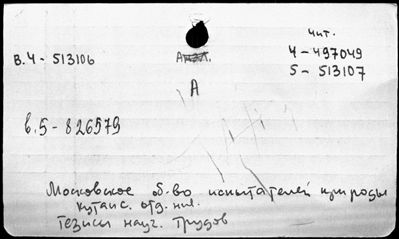 чит.
в.4 - 513106
4 - 497049
5 - 513107
А
в.5 - 826579
Московское об-во испытателей природы
кутаис. отд-ния.
Тезисы науч. трудов